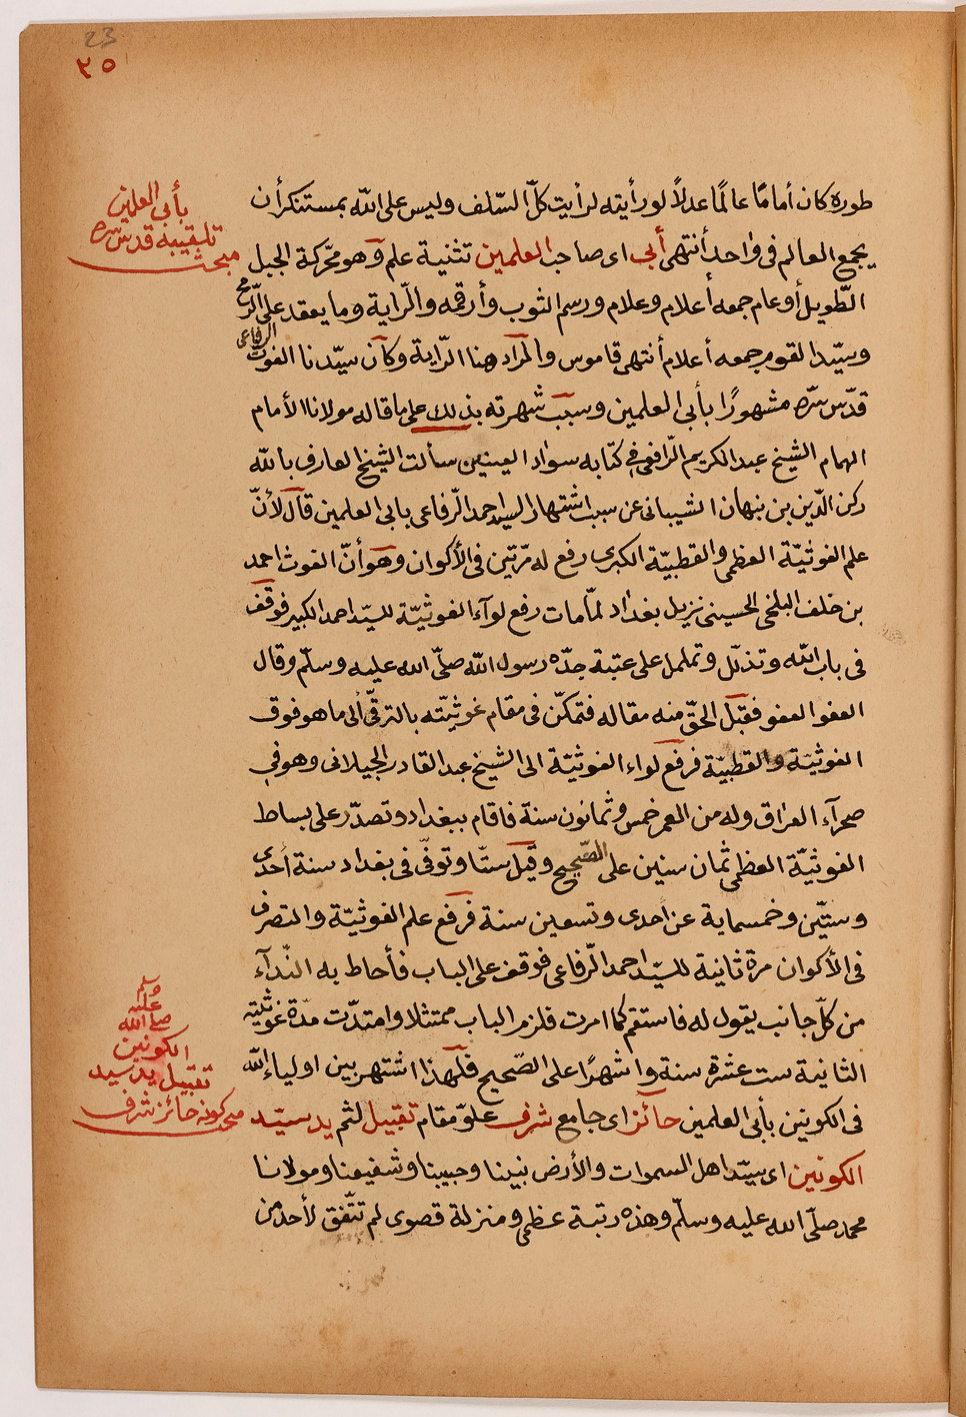 23
٣٥
طوره كان أمامًا عالمًا عدلاً لو رأيته لرأيت كلّ السّلف وليس على الله بمستنكر أن
يجمع العالم فى واحد أنتهى أبى اى صاحب العلمين تثنية علم وهو محّركة الجبل
الطّويل أو عام جمعه أعلام وعلام ورسم الثوب وأرقمه والرّاية وما يعقد على الرّمح
وسيّد القوم جمعه أعلام أنتهى قاموس والمراد هنا الرّاية وكان سيّدنا الغوث الرفاعى
قدّس سرّه مشهورًا بأبى العلمين وسبب شهرته بذلك على ما قاله مولانا الأمام
الهمام الشيخ عبد الكريم الرّافعى فى كتابه سواد العينين سألت الشيخ العارف بالله
ركن الدّين بن نبهان الشيبانى عن سبب اشتهار السيد احمد الرّفاعى بابى العلمين قال لأنّ
علم الغوثيّة العظمى والقطبيّة الكبرى رفع له مرّتين فى الأكوان وهو أنّ الغوث احمد
بن خلف البلخى الحسينى نزيل بغداد لمّا مات رفع لوآء الغوثيّة للسيّد احمد الكبير فوقف
فى باب الله وتذلّل وتململ على عتبة جدّه رسول الله صلّى الله عليه وسلّم وقال
العفو العفو فقبل الحقّ منه مقاله فتمكّن فى مقام غوثيّته بالترقّى ألى ما هو فوق
الغوثيّة والقطبيّة فرفع لواء الغوثيّة الى الشيخ عبد القادر الجيلانى وهو فى
صحرآء العراق وله من العمر خمس وثمانون سنة فاقام ببغداد وتصدّر على بساط
الغوثيّة العظمى ثمان سنين على الصّحيح وقيل ستّا وتوفّى فى بغداد سنة أحدى
وستّين وخمسماية عن احدى وتسعين سنة فرفع علم الغوثيّة والتصرف
فى الأكوان مرة ثانية للسيّد احمد الرّفاعى فوقف على الباب فأحاط به النّدآء
من كلّ جانب يقول له فاستقم كما امرت فلزم الباب ممتثلا وامتدّت مدّة غوثيّته
الثانية ست عشرة سنة واشهرًا على الصّحيح فلهذا اشتهر بين اولياء الله
فى الكونين بأبى العلمين حائز اى جامع شرف علوّ مقام تقبيل لثم يد سيّد
الكونين اى سيّد اهل السموات والأرض نبينا وحبيبنا وشفيعنا ومولانا
محمد صلّى الله عليه وسلّم وهذه رتبة عظمى ومنزلة قصوى لم تتّفق لأحد من
بأبى العلمين
تلقيبه قدس سره
مبحث
وسلم
عليه
صلى الله
الكونين
تقبيل يد سيد
مبحث كونه حائز شرف